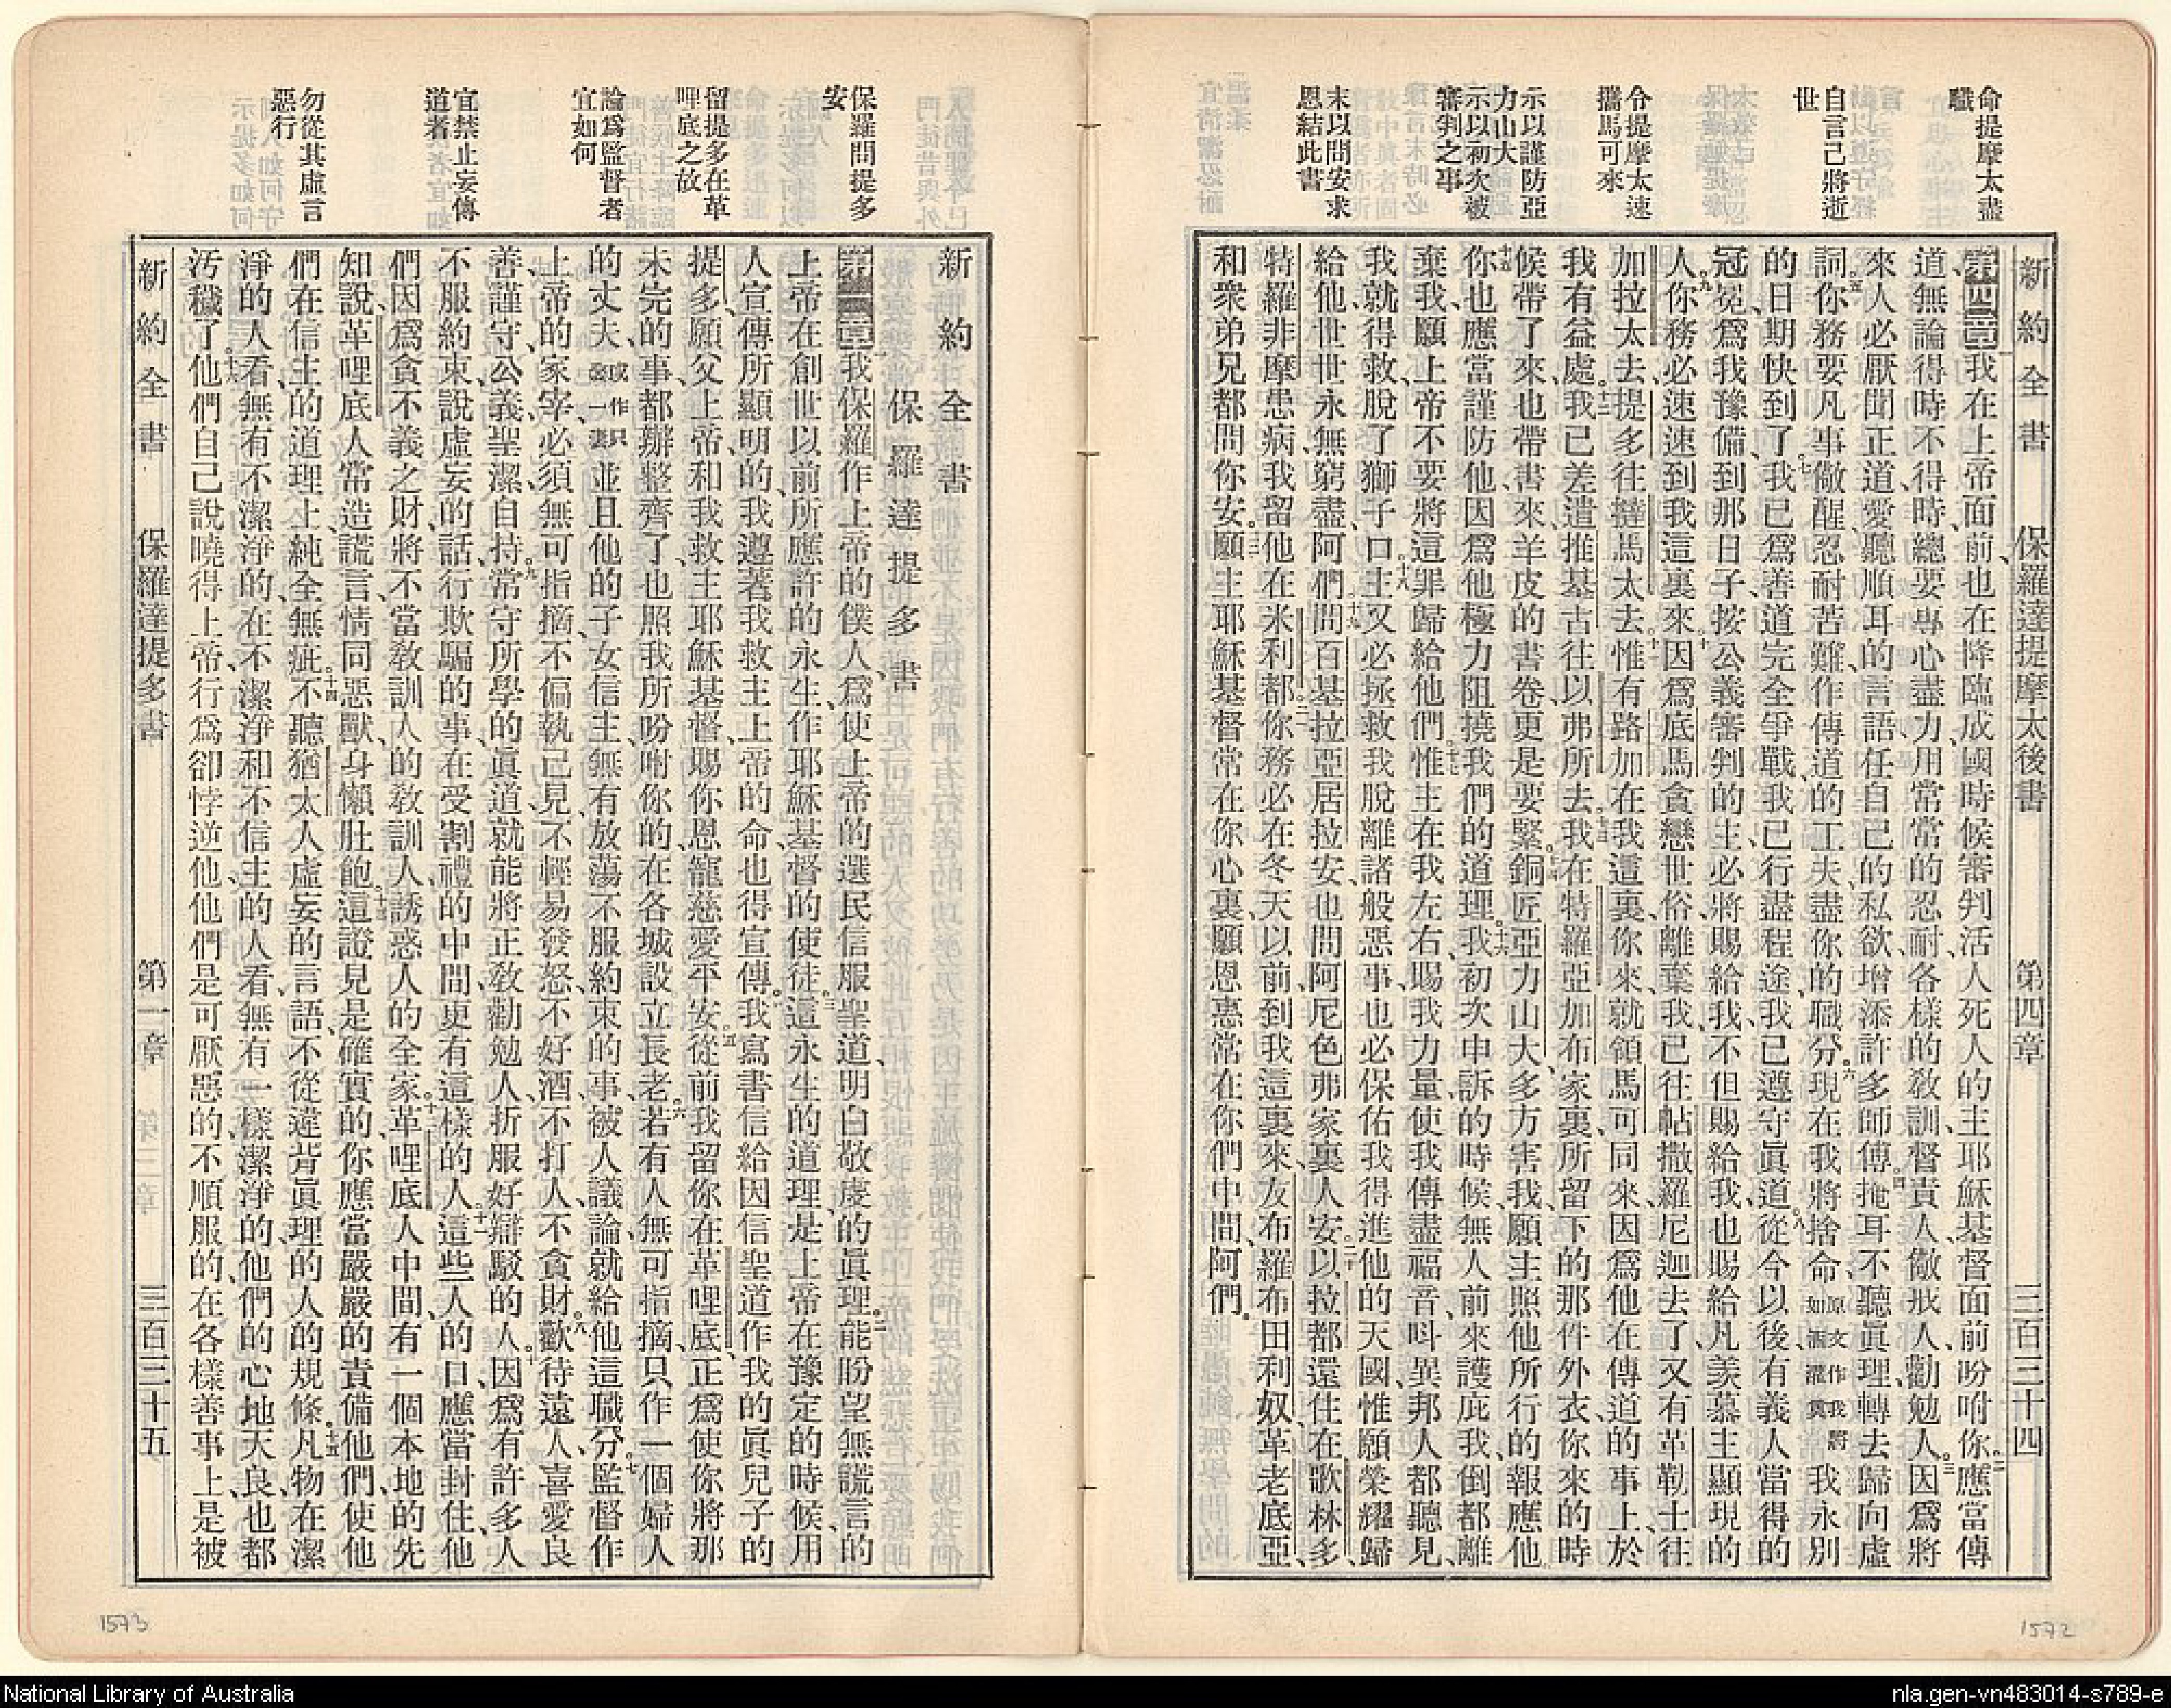 命提摩太盡
職
自言己將逝
世
令提摩太速
攜馬可來
示以謹防亞
力山大
示以初次被
審判之事
末以問安求
恩結此書
新約全書 保羅達提摩太後書 第四章 三百三十四
第四章我在上帝面前、也在降臨成國時候審判活人死人的主耶穌基督面前吩咐你。二應當傳
道、無論得時不得時、總要專心盡力、用常常的忍耐、各樣的敎訓、督責人、儆戒人、勸勉人。三因爲將
來人必厭聞正道、愛聽順耳的言語、任自己的私欲、增添許多師傅。四掩耳不聽眞理、轉去歸向虛
詞。五你務要凡事儆醒、忍耐苦難、作傳道的工夫、盡你的職分。六現在我將捨命、原文作我將如酒灌奠我永別
的日期快到了。七我已爲善道完全爭戰、我已行盡程途、我已遵守眞道。八從今以後、有義人當得的
冠冕爲我豫備、到那日子、按公義審判的主、必將賜給我、不但賜給我、也賜給凡羨慕主顯現的
人。九你務必速速到我這裏來。十因爲底馬貪戀世俗、離棄我、已往帖撒羅尼迦去了、又有革勒士往
加拉太去、提多往撻馬太去。十一惟有路加在我這裏、你來就領馬可同來、因爲他在傳道的事上、於
我有益處。十二我已差遣推基古往以弗所去。十三我在特羅亞加布家裏、所留下的那件外衣、你來的時
候帶了來、也帶書來、羊皮的書卷更是要緊。十四銅匠亞力山大、多方害我、願主照他所行的報應他
十五你也應當謹防他、因爲他極力阻撓我們的道理。十六我初次申訴的時候、無人前來護庇我、倒都離
棄我、願上帝不要將這罪歸給他們。十七惟主在我左右、賜我力量、使我傳盡福音、呌異邦人都聽見、
我就得救脫了獅子口。十八主又必拯救我脫離諸般惡事、也必保佑我得進他的天國、惟願榮耀歸
給他、世世永無窮盡、阿們。十九問百基拉亞居拉安、也問阿尼色弗家裏人安。二十以拉都還住在歌林多、
特羅非摩患病、我留他在米利都。二一你務必在冬天以前到我這裏來、友布羅、布田、利奴、革老底亞、
和衆弟兄都問你安。二二願主耶穌基督常在你心裏、願恩惠常在你們中間、阿們。
保羅問提多
安
留提多在革
哩底之故
論爲監督者
宜如何
宜禁止妄傳
道者
勿從其虛言
惡行
新約全書
保羅達提多書
第一章我保羅作上帝的僕人、爲使上帝的選民信服聖道、明白敬虔的眞理。二能盼望無謊言的
上帝、在創世以前、所應許的永生、作耶穌基督的使徒。三這永生的道理、是上帝在豫定的時候、用
人宣傳所顯明的、我遵著我救主上帝的命、也得宣傳。四我寫書信給因信聖道作我的眞兒子的
提多、願父上帝、和我救主耶穌基督、賜你恩寵慈愛平安。五從前我留你在革哩底、正爲使你將那
未完的事、都辦整齊了、也照我所吩咐你的、在各城設立長老。六若有人無可指摘、只作一個婦人
的丈夫、或作只娶一妻並且他的子女信主、無有放蕩不服約束的事、被人議論、就給他這職分。七監督作
上帝的家宰、必須無可指摘、不偏執己見、不輕易發怒、不好酒、不打人、不貪財。八歡待遠人、喜愛良
善、謹守、公義、聖潔、自持。九常守所學的眞道、就能將正敎勸勉人、折服好辯駁的人。十因爲有許多人
不服約束、說虛妄的話、行欺騙的事、在受割禮的中間、更有這樣的人。十一這些人的口應當封住、他
們因爲貪不義之財、將不當敎訓人的敎訓人、誘惑人的全家。十二革哩底人中間、有一個本地的先
知說、革哩底人常造謊言、情同惡獸、身懶肚飽。十三這證見是確實的、你應當嚴嚴的責備他們、使他
們在信主的道理上、純全無疵。十四不聽猶太人虛妄的言語、不從違背眞理的人的規條。十五凡物在潔
淨的人看、無有不潔淨的、在不潔淨和不信主的人看、無有一樣潔淨的、他們的心地天良也都
污穢了。十六他們自己說曉得上帝、行爲卻悖逆他、他們是可厭惡的、不順服的、在各樣善事上、是被
新約全書 保羅達提多書 第一章 三百三十五
1573
1572
National Library of Australia
nla.gen-vn483014-s789-e